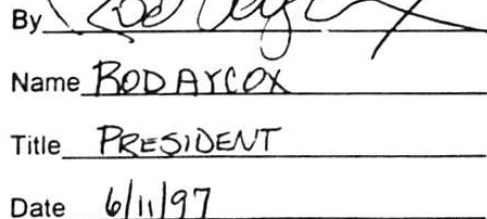 By
Name ROD AYCOX
Title PRESIDENT
Date 6/11/97